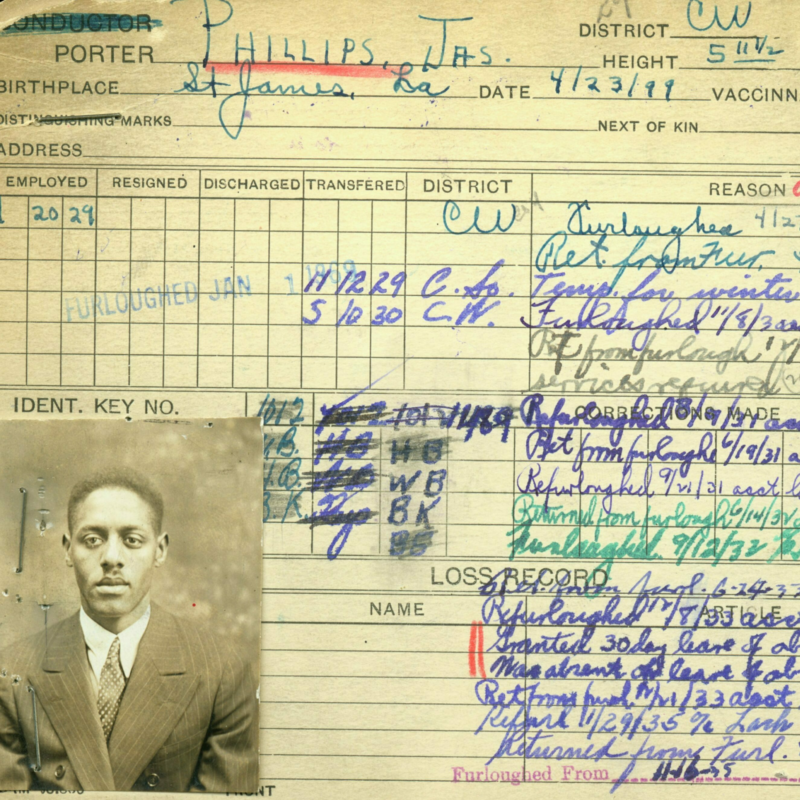 CONDUCTOR
PORTER PHILLIPS, JAS. DISTRICT CW
HEIGHT 5 11 1/2
BIRTHPLACE St James, La DATE 4/23/99 VACCINN
DISTINGUISHING MARKS NEXT OF KIN
ADDRESS
EMPLOYED RESIGNED DISCHARGED TRANSFERED DISTRICT REASON
20 29 CW Furloughed
Ret. from Fur.
FURLOUGHED JAN 1
11 12 29 C. So. Temp. for winter
5 10 30 C.W. Furloughed 11/8/3
Ret from furlough
services required
IDENT. KEY NO. 1012 1012 11489 CORRECTIONS MADE
Refurloughed
HB Ret from furlough 6/19/31
WB Refurloughed 9/21/31 acct
BK Returned from furlough 6/14/32
Furloughed. 9/12/32
LOSS RECORD
furl. 6-24-33
NAME ARTICLE
Refurloughed 12/8/33 acct
Granted 30 day leave of ab
Was absent on leave of ab
Ret from furl. 12/21/33 acct
Refurl 1/29/35 % Lack
Returned from Furl.
Furloughed From 11-16-35
FRONT